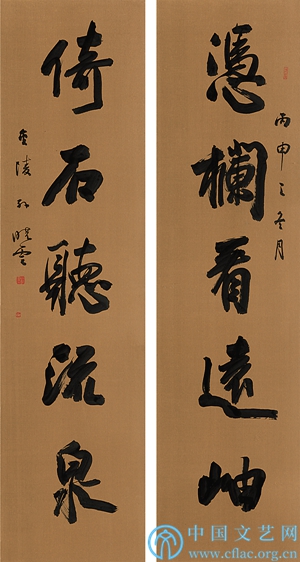 憑欄看遠岫
丙申之冬月
倚石聽流泉
金陵孙晓雲
中国文艺网
www.cflac.org.cn